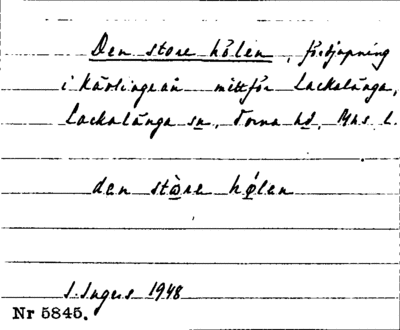 Den store hölen, fördjupning
i Kävlingeån mitt för Lackalänga,
Lackalänga sn, Torna hd, Mhs l.
den stͅore hǿlen
I. Ingers 1948
Nr 5845.